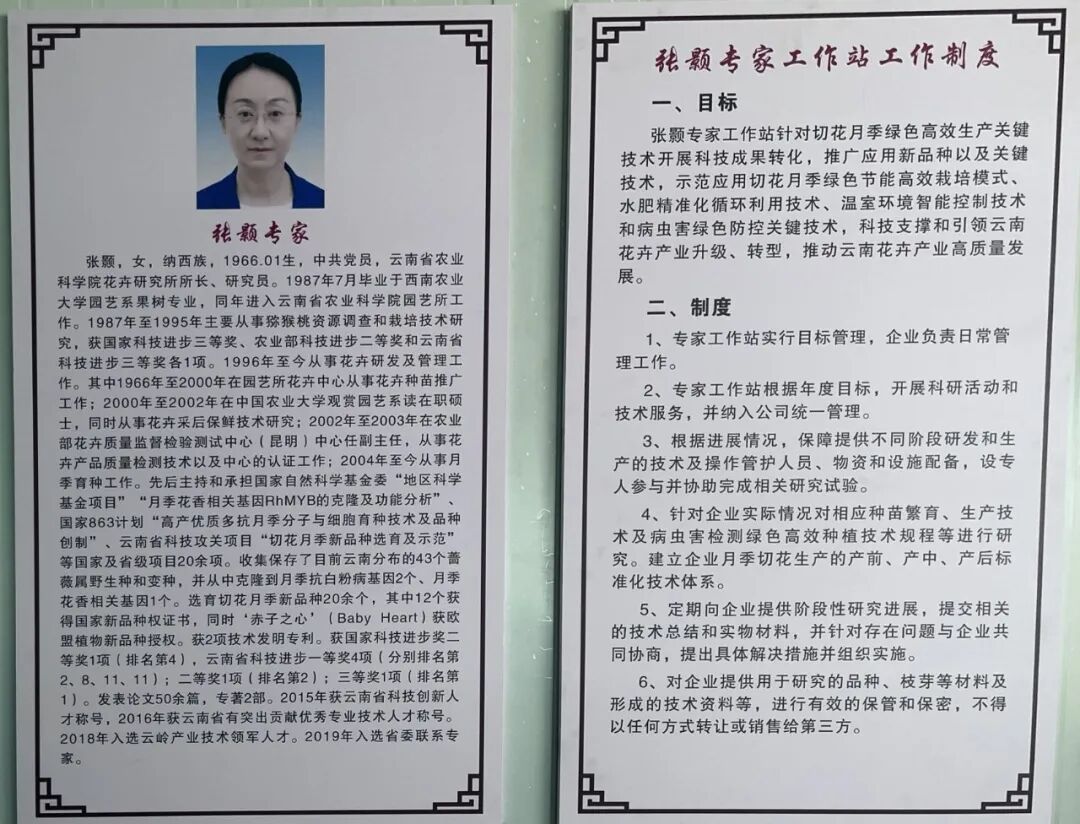 张颢专家
张颢，女，纳西族，1966.01生，中共党员，云南省农业
科学院花卉研究所所长、研究员。1987年7月毕业于西南农业
大学园艺系果树专业，同年进入云南省农业科学院园艺所工
作。1987年至1995年主要从事猕猴桃资源调查和栽培技术研
究，获国家科技进步三等奖、农业部科技进步二等奖和云南省
科技进步三等奖各1项。1996年至今从事花卉研发及管理工
作。其中1966年至2000年在园艺所花卉中心从事花卉种苗推广
工作；2000年至2002年在中国农业大学观赏园艺系读在职硕
士，同时从事花卉采后保鲜技术研究；2002年至2003年在农业
部花卉质量监督检验测试中心（昆明）中心任副主任，从事花
卉产品质量检测技术以及中心的认证工作；2004年至今从事月
季育种工作。先后主持和承担国家自然科学基金委“地区科学
基金项目”“月季花香相关基因RhMYB的克隆及功能分析”、
国家863计划“高产优质多抗月季分子与细胞育种技术及品种
创制”、云南省科技攻关项目“切花月季新品种选育及示范”
等国家及省级项目20余项。收集保存了目前云南分布的43个蔷
薇属野生种和变种，并从中克隆到月季抗白粉病基因2个、月季
花香相关基因1个。选育切花月季新品种20余个，其中12个获
得国家新品种权证书，同时‘赤子之心’（Baby Heart）获欧
盟植物新品种授权。获2项技术发明专利。获国家科技进步奖二
等奖1项（排名第4），云南省科技进步一等奖4项（分别排名第
2、8、11、11）；二等奖1项（排名第2）；三等奖1项（排名第
1）。发表论文50余篇，专著2部。2015年获云南省科技创新人
才称号，2016年获云南省有突出贡献优秀专业技术人才称号。
2018年入选云岭产业技术领军人才。2019年入选省委联系专
家。
张颢专家工作站工作制度
一、目标
张颢专家工作站针对切花月季绿色高效生产关键
技术开展科技成果转化，推广应用新品种以及关键
技术，示范应用切花月季绿色节能高效栽培模式、
水肥精准化循环利用技术、温室环境智能控制技术
和病虫害绿色防控关键技术，科技支撑和引领云南
花卉产业升级、转型，推动云南花卉产业高质量发
展。
二、制度
1、专家工作站实行目标管理，企业负责日常管
理工作。
2、专家工作站根据年度目标，开展科研活动和
技术服务，并纳入公司统一管理。
3、根据进展情况，保障提供不同阶段研发和生
产的技术及操作管护人员、物资和设施配备，设专
人参与并协助完成相关研究试验。
4、针对企业实际情况对相应种苗繁育、生产技
术及病虫害检测绿色高效种植技术规程等进行研
究。建立企业月季切花生产的产前、产中、产后标
准化技术体系。
5、定期向企业提供阶段性研究进展，提交相关
的技术总结和实物材料，并针对存在问题与企业共
同协商，提出具体解决措施并组织实施。
6、对企业提供用于研究的品种、枝芽等材料及
形成的技术资料等，进行有效的保管和保密，不得
以任何方式转让或销售给第三方。